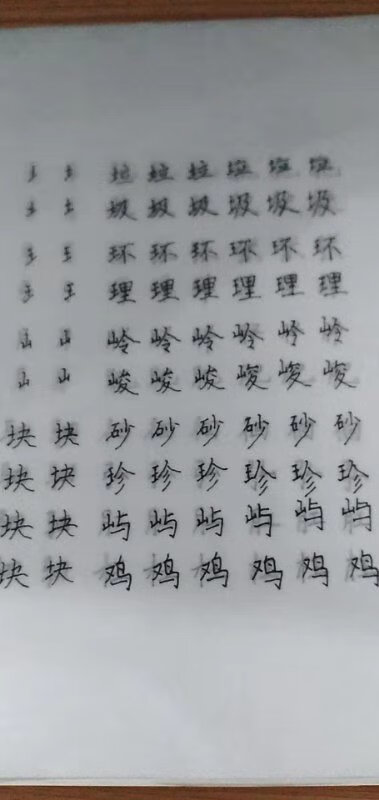 土 土 垃 垃 垃 垃 垃 垃
土 土 圾 圾 圾 圾 圾 圾
王 王 环 环 环 环 环 环
王 王 理 理 理 理 理 理
山 山 岭 岭 岭 岭 岭 岭
山 山 峻 峻 峻 峻 峻 峻
块 块 砂 砂 砂 砂 砂 砂
块 块 珍 珍 珍 珍 珍 珍
块 块 屿 屿 屿 屿 屿 屿
块 块 鸡 鸡 鸡 鸡 鸡 鸡